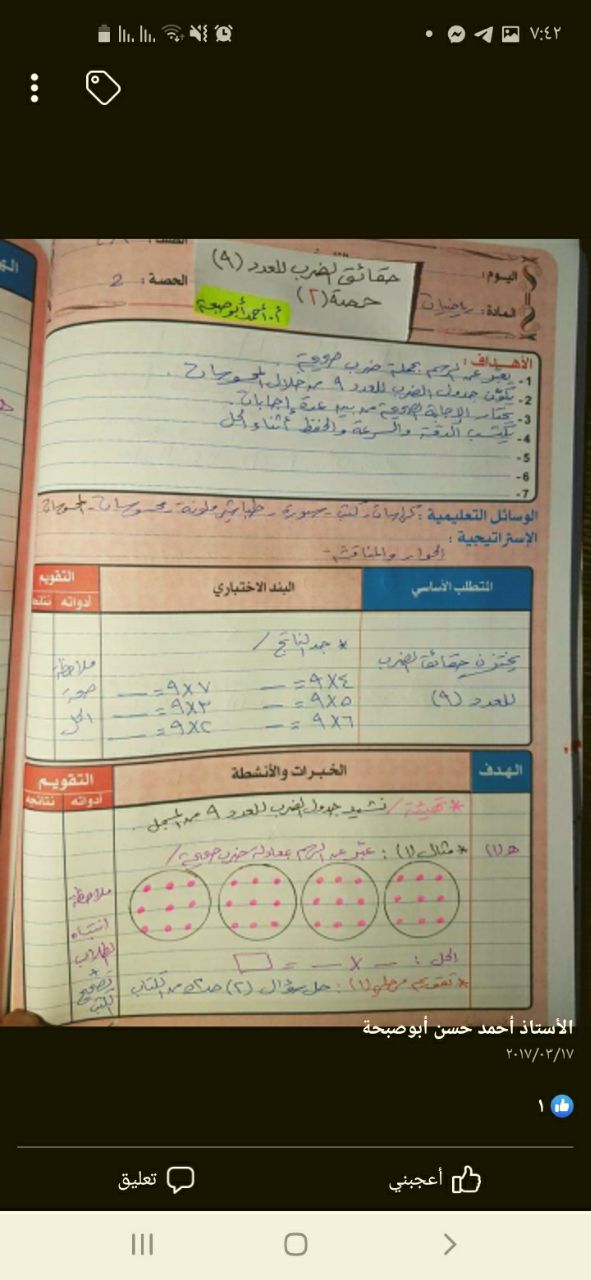 ٧:٤٢
حقائق الضرب للعدد (٩)
حصة (٢)
أ. أحمد أبو صبحة
اليوم:
المادة: رياضيات
الحصة: 2
الأهداف:
1- يعبر عن الرسم بجملة ضرب صحيحة.
2- يكوّن جدول الضرب للعدد ٩ من خلال المحسوسات.
3- يختار الإجابة الصحيحة من بين عدة إجابات.
4- يكتسب الدقة والسرعة والحفظ أثناء الحل
5-
6-
7-
الوسائل التعليمية: كراسات - كتب - سبورة - طباشير ملونة - محسوسات -
الإستراتيجية:
الحوار والمناقشة -
المتطلب الأساسي
البند الاختباري
التقويم
أدواته
يختزن حقائق الضرب
للعدد (٩)
* جد الناتج /
٤×٩ = __ ٧×٩ = __
٥×٩ = __ ٣×٩ = __
٦×٩ = __ ٢×٩ = __
ملاحظة
صحة
الحل
الهدف
الخبرات والأنشطة
التقويم
أدواته نتائجه
* تهيئة / نشيد جدول الضرب للعدد ٩ من المسجل.
هـ(١) * مثال (١): عبّر عن الرسم بمعادلة ضرب صحيحة /
الحل: __ × __ = □
* تقويم مرحلي (١): حل سؤال (٢) من الكتاب
ملاحظة
انتباه
الطلاب
+
تصحيح
الكتب
الأستاذ أحمد حسن أبوصبحة
٢٠١٧/٠٣/١٧
١
أعجبني
تعليق